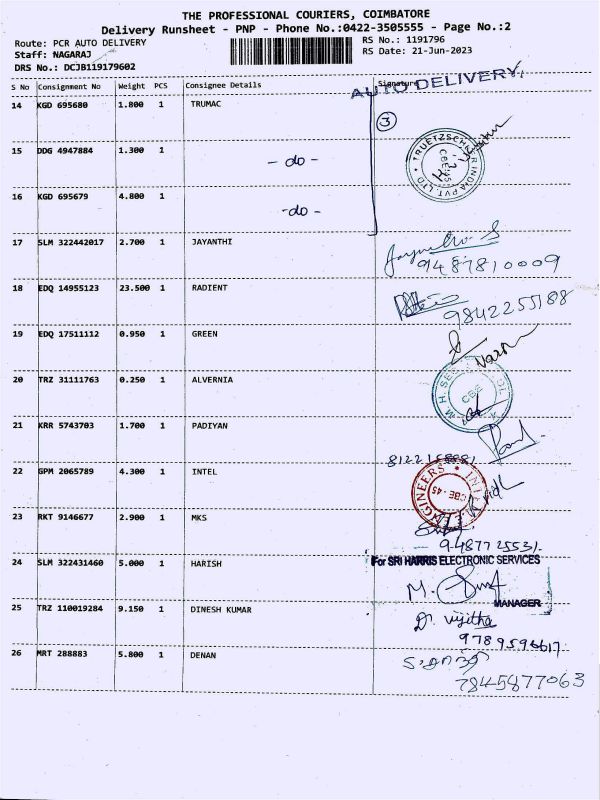 THE PROFESSIONAL COURIERS, COIMBATORE
Delivery Runsheet - PNP - Phone No.:0422-3505555 - Page No.:2
Route: PCR AUTO DELIVERY
RS No.: 1191796
Staff: NAGARAJ
RS Date: 21-Jun-2023
DRS No.: DCJB119179602
S No Consignment No Weight PCS Consignee Details Signature
AUTO DELIVERY,
14 KGD 695680 1.800 1 TRUMAC
3
TRUETZSCHLER INDIA PVT. LTD
15 DDG 4947884 1.300 1 - do -
16 KGD 695679 4.800 1 - do -
17 SLM 322442017 2.700 1 JAYANTHI
9487810009
18 EDQ 14955123 23.500 1 RADIENT
9842255188
19 EDQ 17511112 0.950 1 GREEN
20 TRZ 31111763 0.250 1 ALVERNIA
CBE
21 KRR 5743703 1.700 1 PADIYAN
8122158881
22 GPM 2065789 4.300 1 INTEL
ENGINEERS
CBE - 45
23 RKT 9146677 2.900 1 MKS
9487725531.
24 SLM 322431460 5.000 1 HARISH
For SRI HARRIS ELECTRONIC SERVICES
MANAGER
25 TRZ 110019284 9.150 1 DINESH KUMAR
Dr. Vijitha
9789596617
26 MRT 288883 5.800 1 DENAN
7845877063